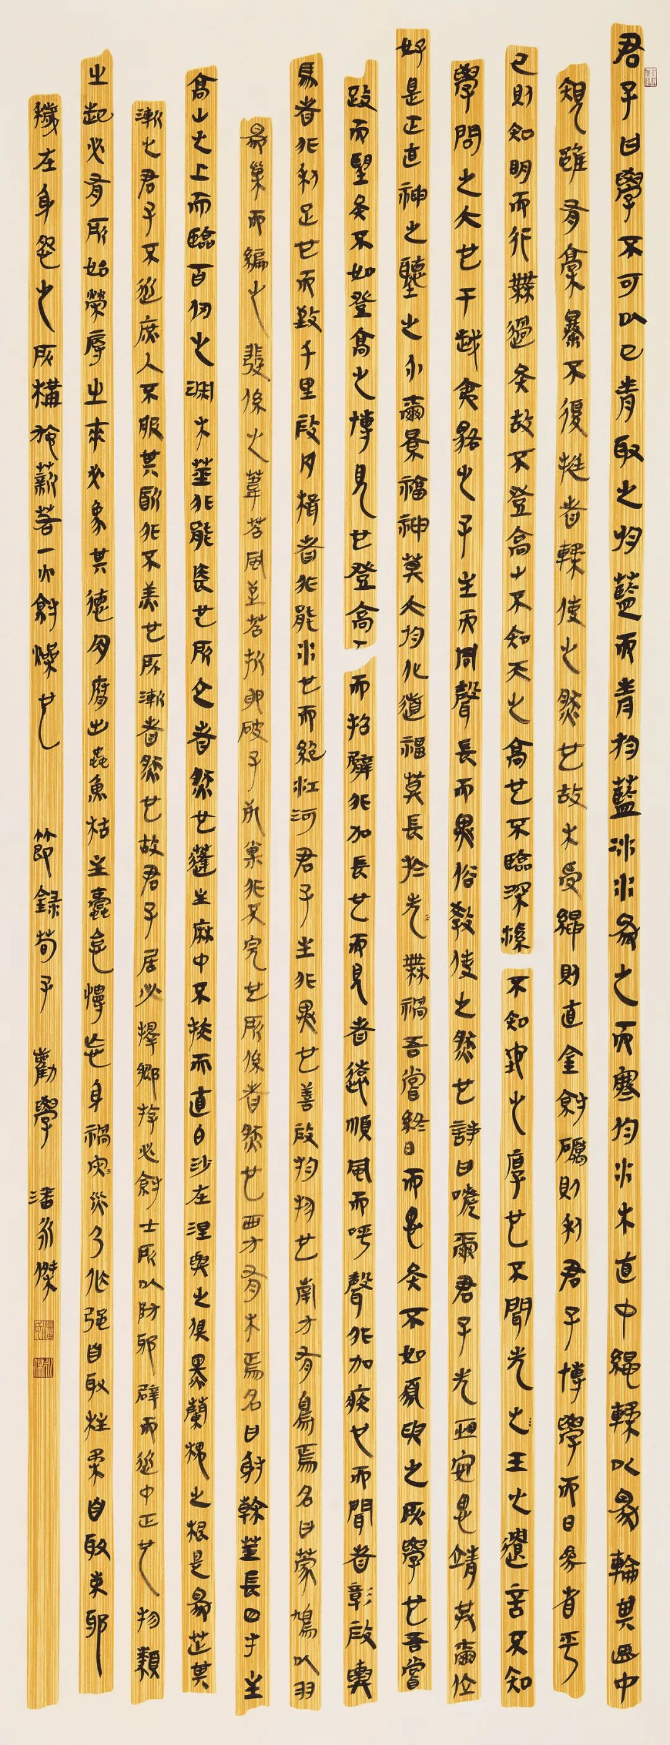 君子曰學不可以已青取之於藍而青於藍冰水為之而寒於水木直中繩輮以為輪其曲中
規雖有槁暴不復挺者輮使之然也故木受繩則直金就礪則利君子博學而日參省乎
己則知明而行無過矣故不登高山不知天之高也不臨深谿不知地之厚也不聞先之王之遺言不知
學問之大也干越夷貉之子生而同聲長而異俗教使之然也詩曰嗟爾君子无恆安息靖共爾位
好是正直神之聽之介爾景福神莫大於化道福莫長於无無禍吾嘗終日而思矣不如須臾之所學也吾嘗
跂而望矣不如登高之博見也登高而招臂非加長也而見者遠順風而呼聲非加疾也而聞者彰假輿
馬者非利足也而致千里假舟楫者非能水也而絕江河君子生非異也善假於物也南方有鳥焉名曰蒙鳩以羽
為巢而編之髮係之葦苕風至苕折卵破子死巢非不完也所係者然也西方有木焉名曰射幹莖長四寸生
高山之上而臨百仞之淵木莖非能長也所立者然也蓬生麻中不扶而直白沙在涅與之俱黑蘭槐之根是為芷其
漸之君子不近庶人不服其質非不美也所漸者然也故君子居必擇鄉遊必就士所以防邪僻而近中正也物類
之起必有所始榮辱之來必象其德肉腐出蟲魚枯生蠹怠慢忘身禍災乃作強自取柱柔自取束邪
穢在身怨之所構施薪若一火就燥也 節錄荀子勸學 潘永傑